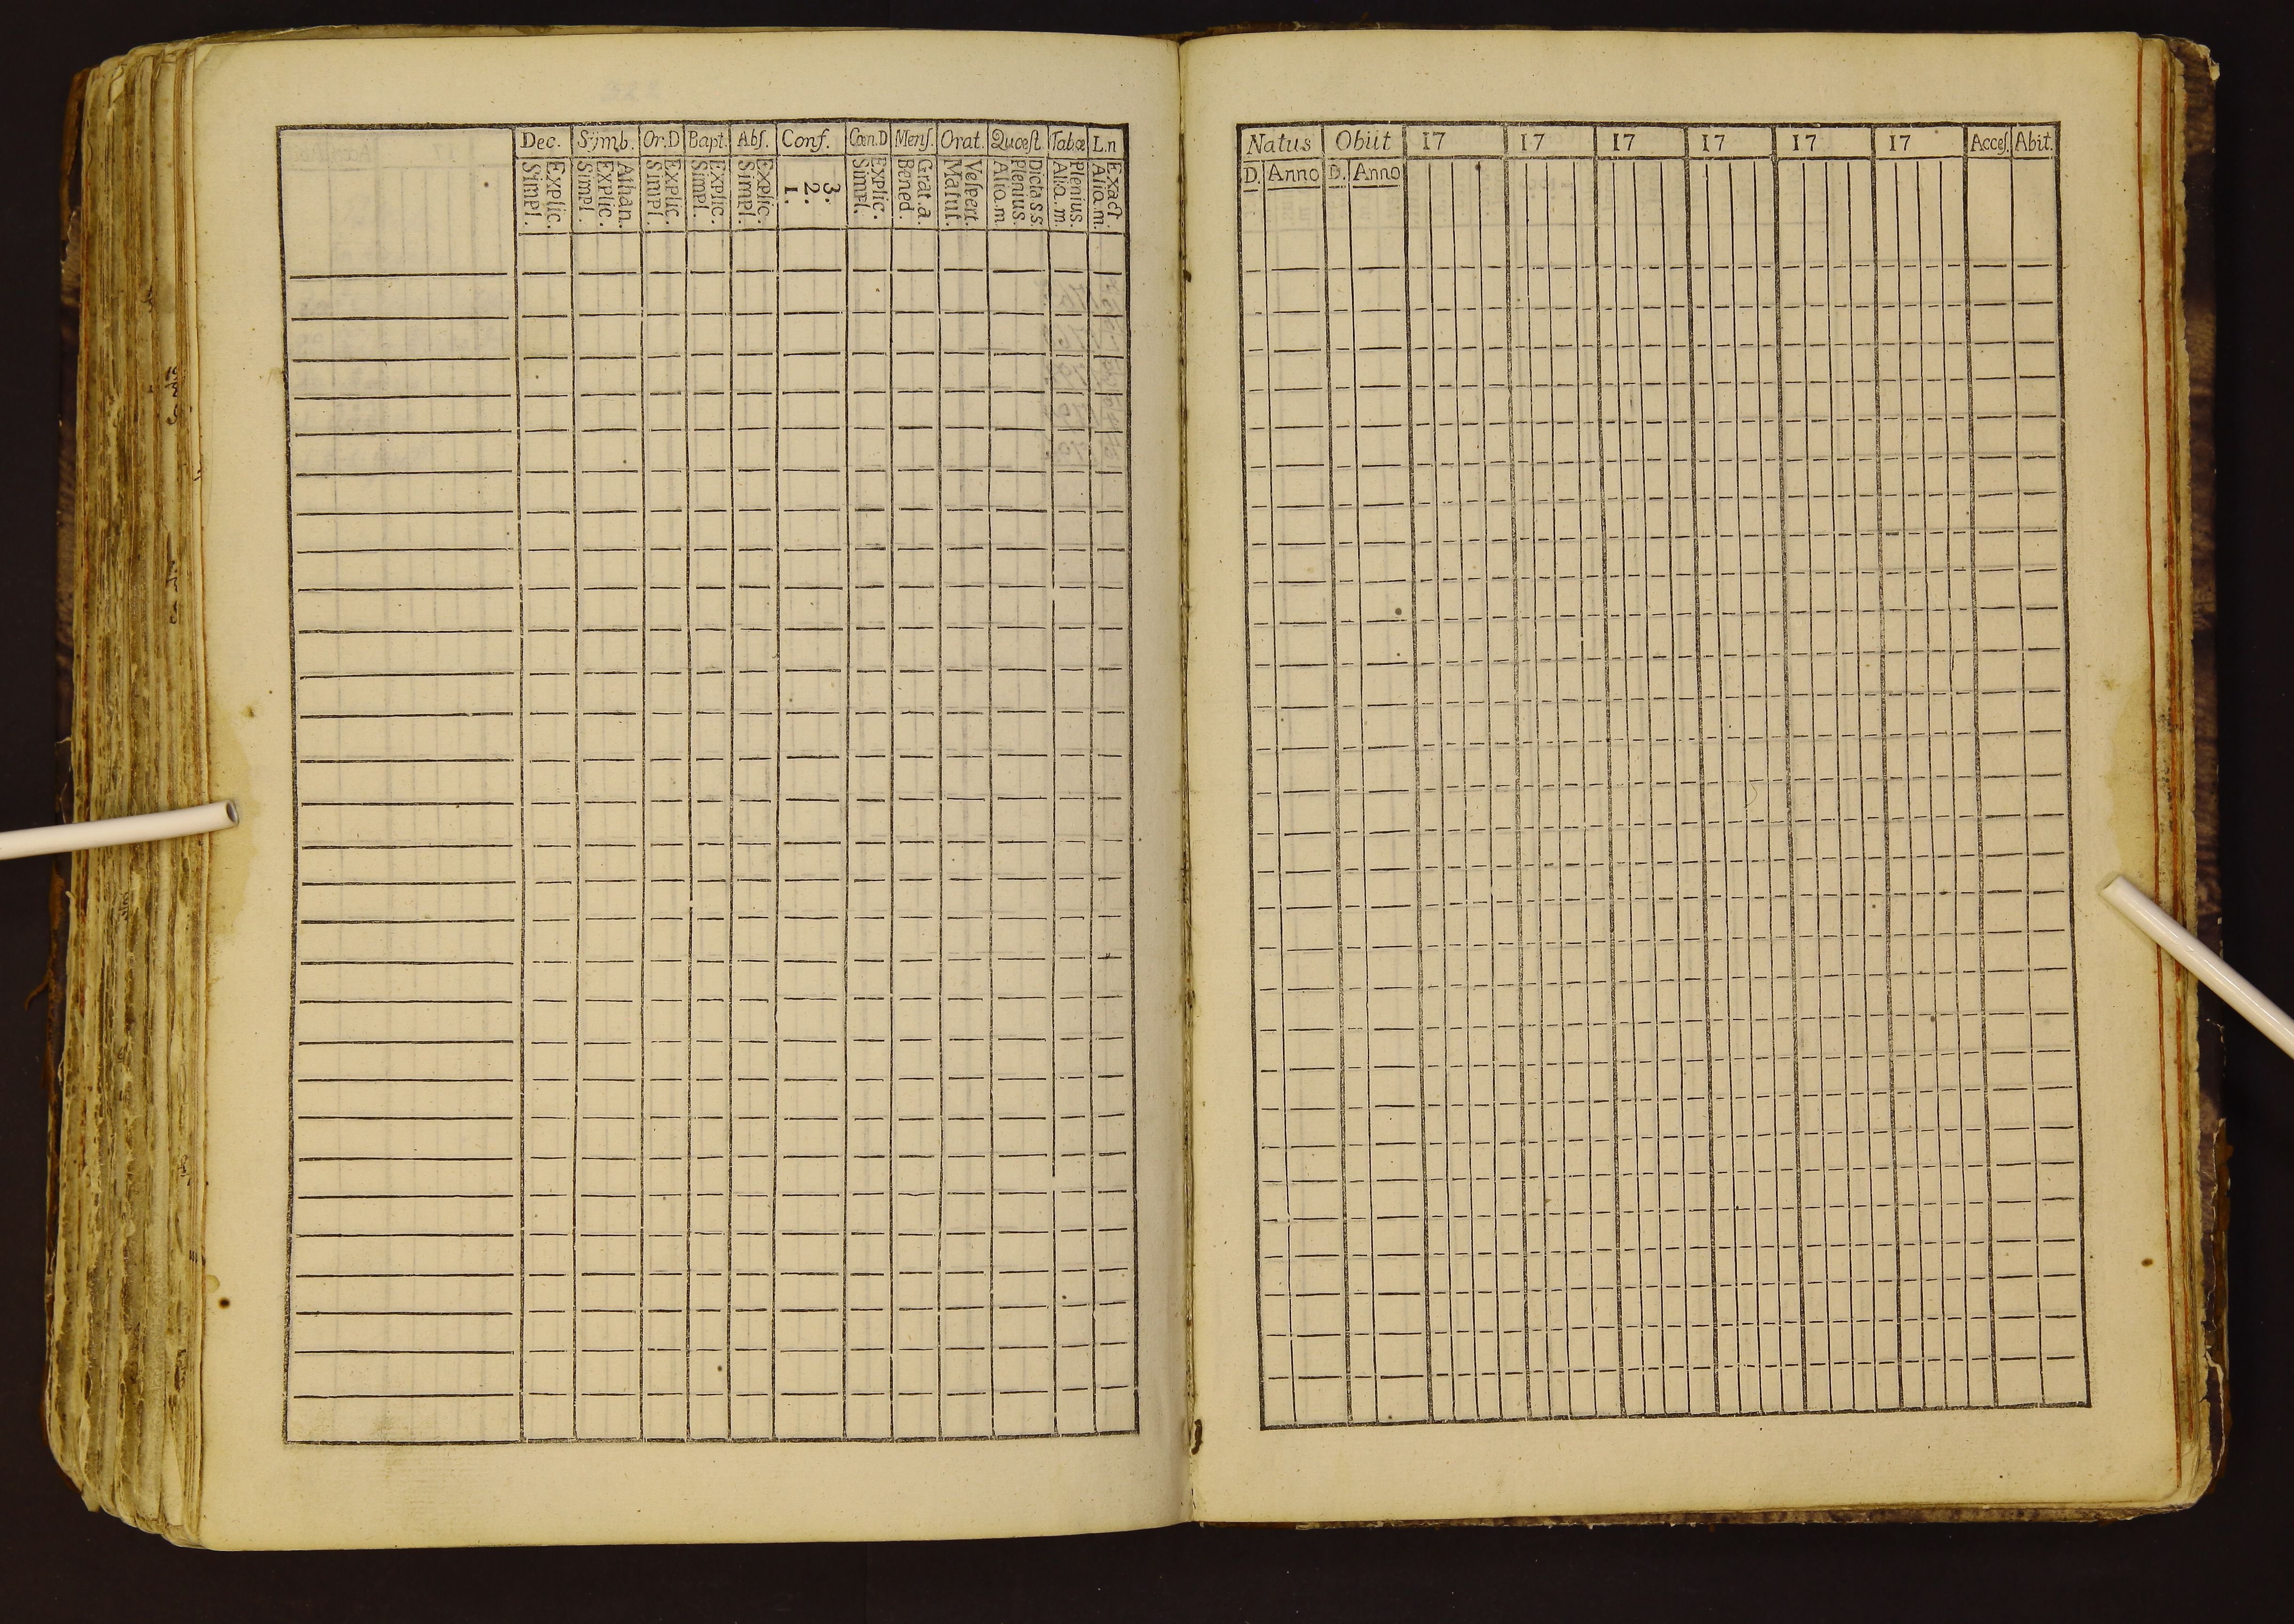 Dec. Symb. Or.D Bapt. Abſ. Conf. Cœn.D Menſ. Orat. Quæſt. Tabœ L.n
Explic. Simpl. Athan. Explic. Simpl. Explic. Simpl. Explic. Simpl. Explic. Simpl. 3. 2. 1. Explic. Simpl. Grat.a. Bened. Veſpert. Matut. Dicta s.s. Plenius. Aliq.m Plenius. Aliq.m Exact. Aliq.m.
Natus Obiit 17 17 17 17 17 17 Acceſ. Abit.
D. Anno D. Anno